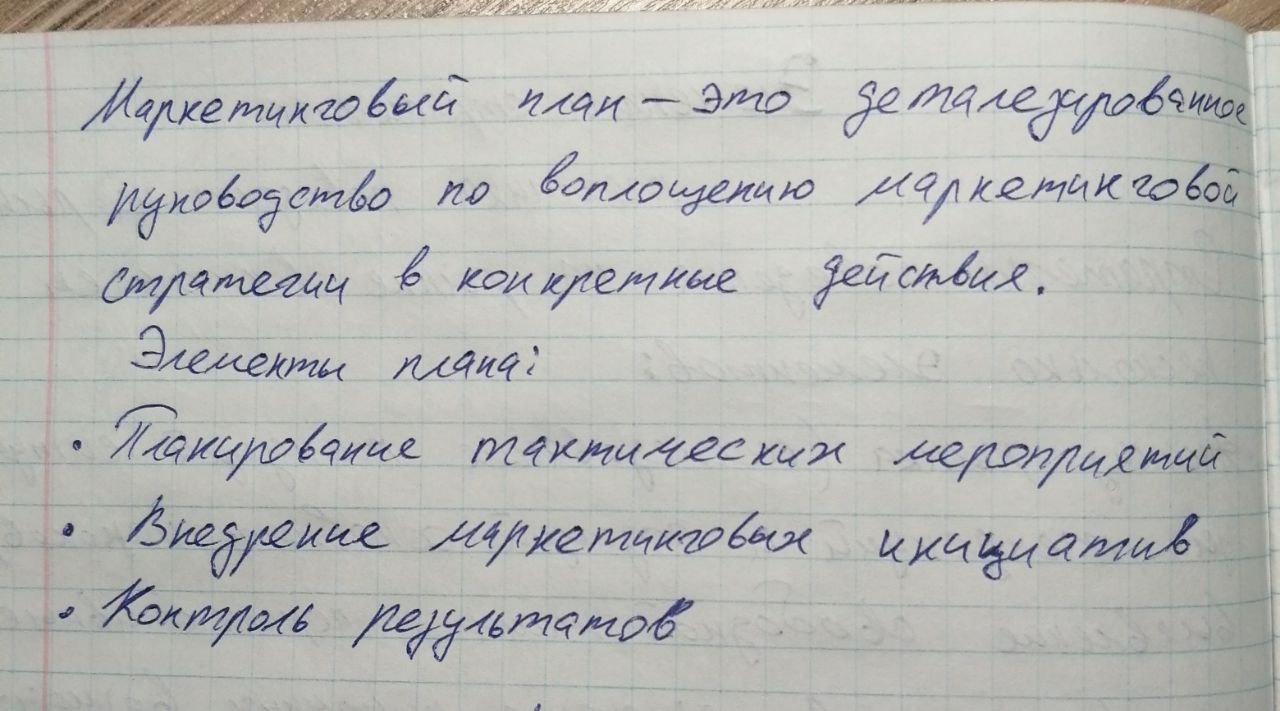 Маркетинговый план – это деталезированное
руководство по воплощению маркетинговой
стратегии в конкретные действия.
Элементы плана:
• Планирование тактических мероприятий
• Внедрение маркетинговых инициатив
• Контроль результатов